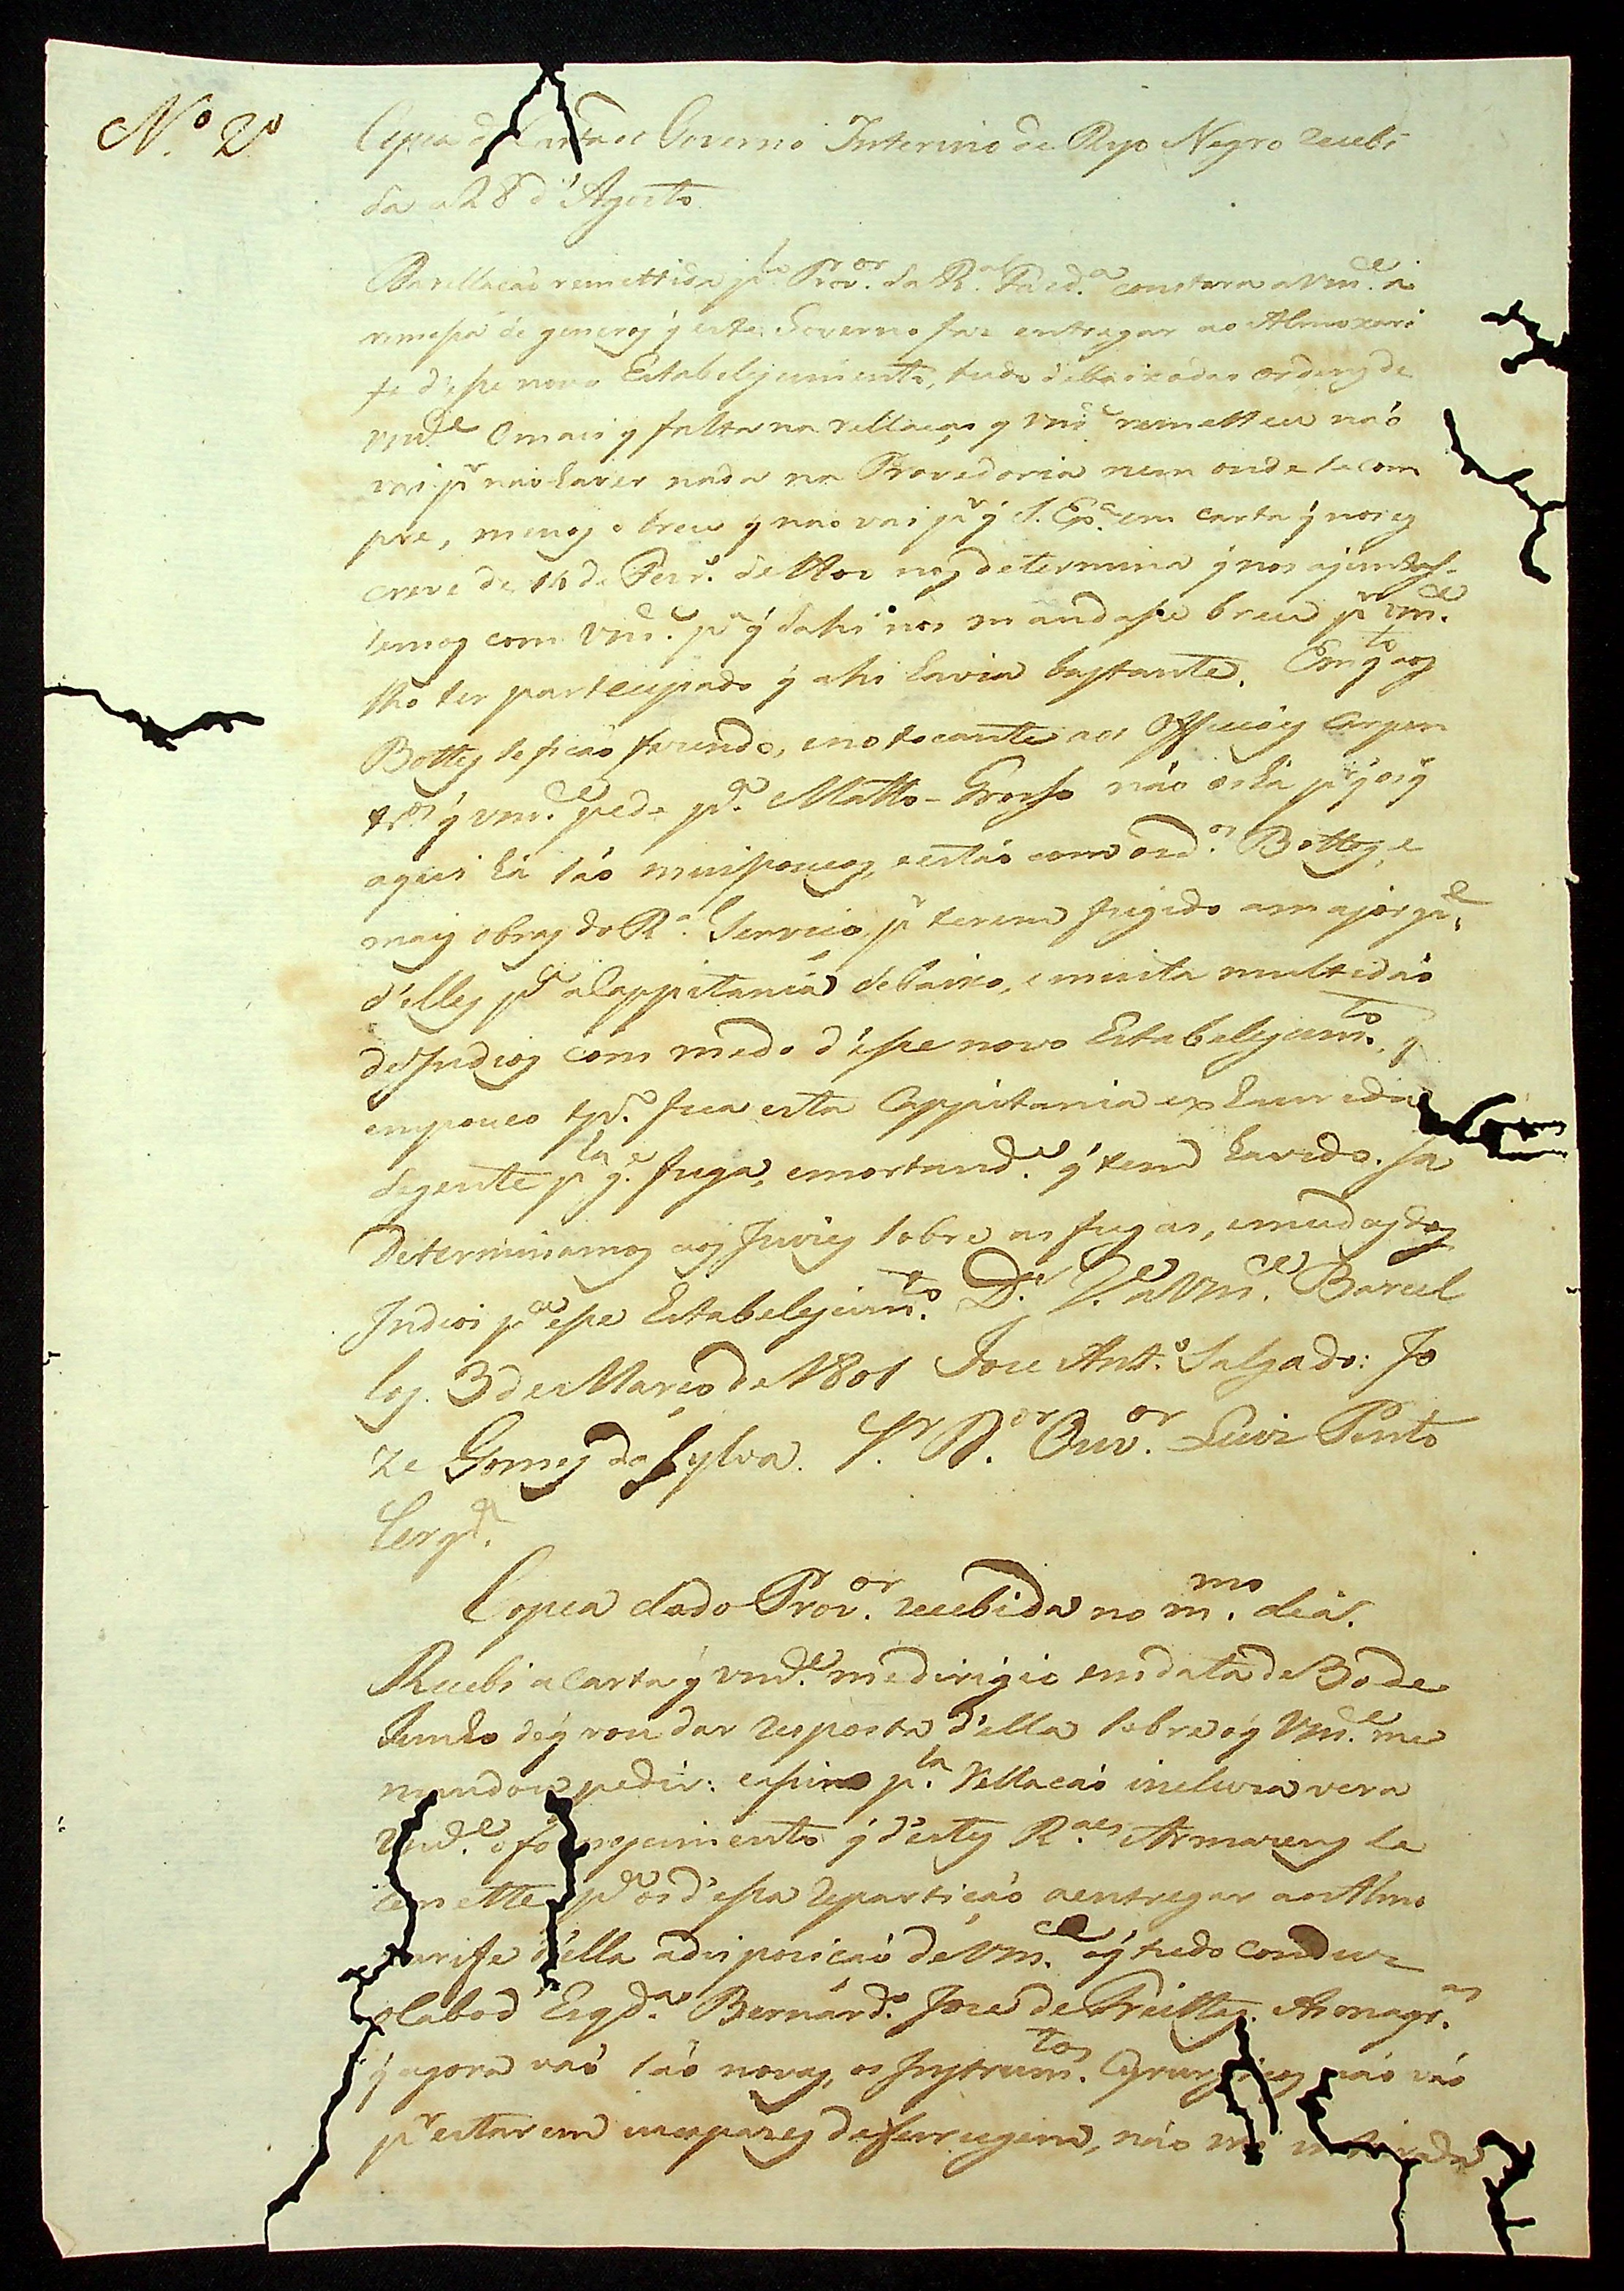 N.º 2º
Copia da Carta do Governo Interino do Ryo Negro recebi
da a 28 d'Agosto
Da rellacaõ remettida p.lo Prov.or da R.al Fazd.a constara a Vm.ce a
remessa de generos q̃ este Governo faz entregar ao Almoxari
fe d'esse novo Estabelejimento, tudo debaixo das ordens de
Vm.ce O mais q̃ falta na rellaçaõ q̃ Vm.ce remetteu naõ
vai p.r naõ haver nada na Provedoria nem onde se com
pre, menos o breu q̃ naõ vai p.r q̃ S. Ex.ca em carta q̃ nos es
creve de 16 de Fevr.o de nos determina q̃ nos ajuntas-
semos com Vm.ce p.a q̃ dahi nos mandasse breu p.r Vm.ce
lho ter partecipado q̃ ahi havia bastante. Em q.to aos
Bottes se ficaõ fazendo, e no tocante aos Officiaes Carpen
tr.os q̃ Vm.ce pede p.a Matto-Grosso naõ os há p.r q̃ os q̃
aqui há saõ mui poucos, e estaõ com os d.os Bottes, e
mais obras do R.l Servico, p.r terem fugido a major p.e
d'elles p.a a Cappitania debaixo, e muita multidaõ
de Indios com medo d'esse novo Estabelejim.to, q̃
em pouco tp.o fica esta Cappitania exhaurida
de gente p.la g.e fuga, e mortand.e q̃ tem havido. Ja
Determinamos aos Juizes sobre as fugas, e mudas dos
Indios p.a esse Estabelejim.to D.s G.e a Vm.ce Barcel
los. 3 de Março de 1801 Jose Ant.o Salgado: Jo
ze Gomes da Sylva. S.r D.or Ouv.or Luiz Pinto
Cerq.ra
Copea da do Prov.or recebida no m.mo dia.
Recebi a Carta q̃ Vm.ce me dirigio em data de 30 de
Junho de q̃ vou dar resposta d'ella sobre o q̃ Vm.ce me
mandou pedir: e assim p.la Rellacaõ inclusa vera
Vm.ce o fornejimento q̃ d'estes R.aes Armazens se
remette p.a os d'essa Repartiçaõ a entregar ao Almo
xarife d'ella a disposicaõ de Vm.ce o q̃ tudo conduz
o Cabo d'Esqd.a Bernard.o Joze de Freittas. As
q̃ agora vaõ saõ novas, os Instrum.tos Cyrurgicos naõ vaõ
p.r estarem incapazes da ferrugem, naõ